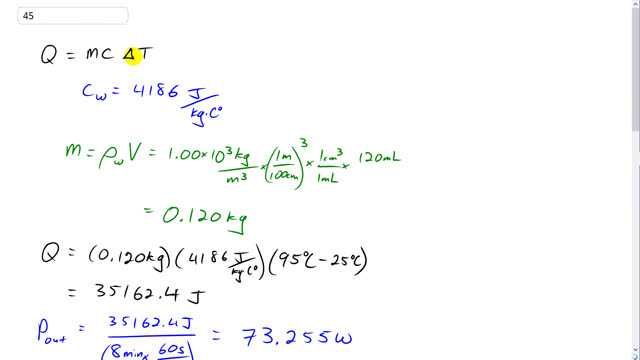 45
Q = mc ΔT
Cw = 4186 J/kg·C°
m = ρw V = 1.00×10³ kg/m³ × (1m/100cm)³ × 1cm³/1mL × 120mL
= 0.120kg
Q = (0.120kg)(4186 J/kg·C°)(95°C − 25°C)
= 35162.4 J
Pout = 35162.4J/(8min × 60s = 73.255W